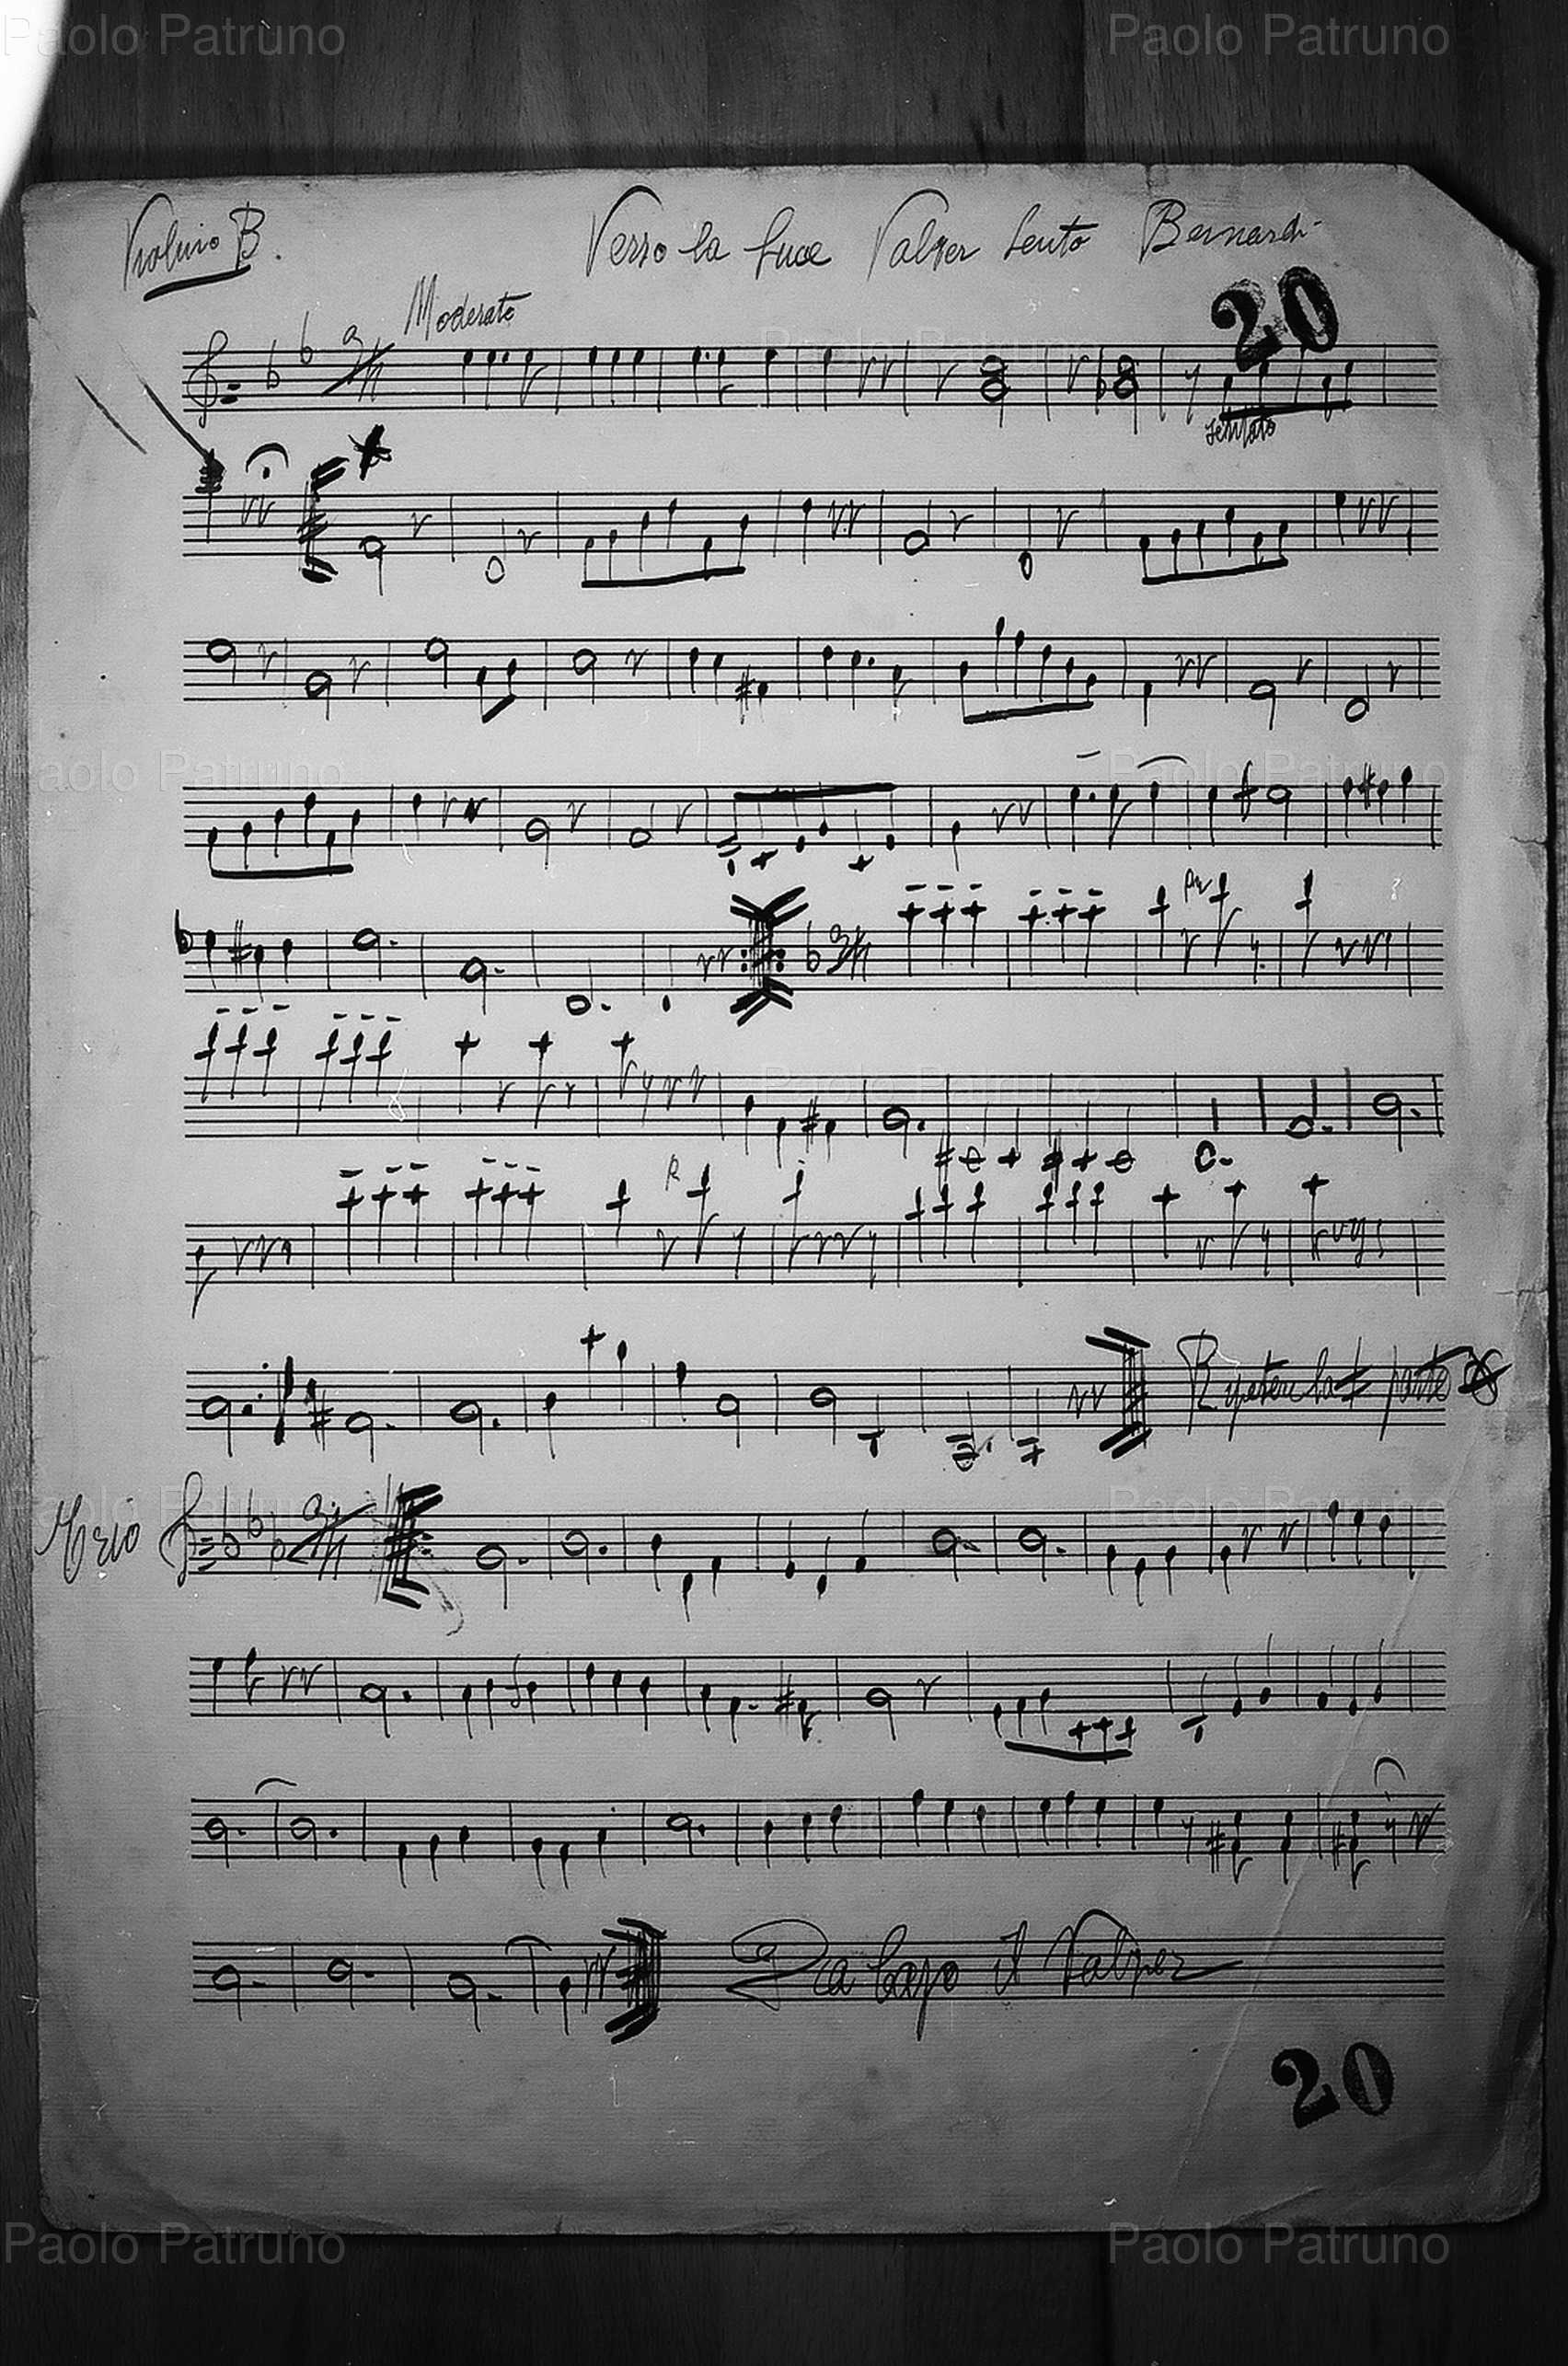 Paolo Patruno Paolo Patruno
Violino B. Verso la Luce Valzer Lento Bernardi
Moderato 20
Paolo Patruno
stentato
Paolo Patruno Paolo Patruno
Paolo Patruno
Ripetere la parte
Trio
Paolo Patruno Paolo Patruno
Paolo Patruno
Da Capo il Valzer
20
Paolo Patruno Paolo Patruno